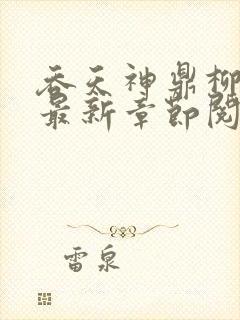 吞天神鼎柳
最新章节阅
雷泉